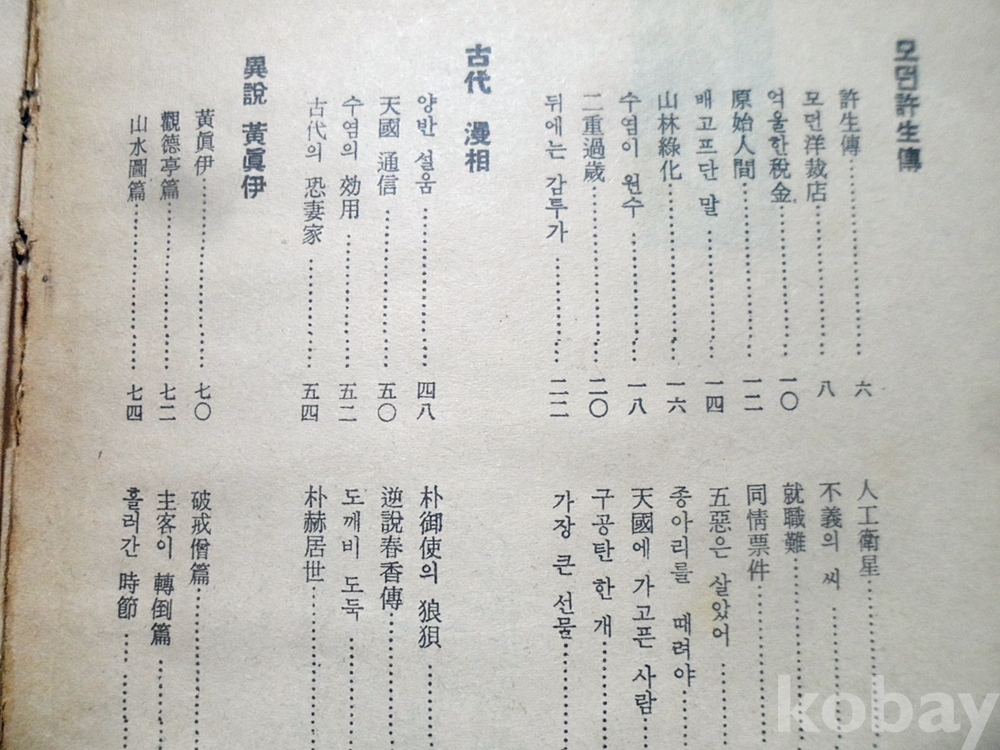 모던許生傳
許生傳……六
모던洋裁店……八
억울한税金……一〇
原始人間……一二
배고프단 말……一四
山林綠化……一六
수염이 원수……一八
二重過歲……二〇
뒤에는 감투가……二二
人工衛星
不義의 씨……
就職難……
同情票件……
五惡은 살았어……
종아리를 때려야……
天國에 가고픈 사람
구공탄 한 개……
가장 큰 선물……
古代 漫相
양반 설움……四八
天國 通信……五〇
수염의 効用……五二
古代의 恐妻家……五四
朴御使의 狼狽……
逆說春香傳……
도깨비 도둑……
朴赫居世……
異說 黃眞伊
黃眞伊……七〇
觀德亭篇……七二
山水圖篇……七四
破戒僧篇……
主客이 轉倒篇……
흘러간 時節……
kobay